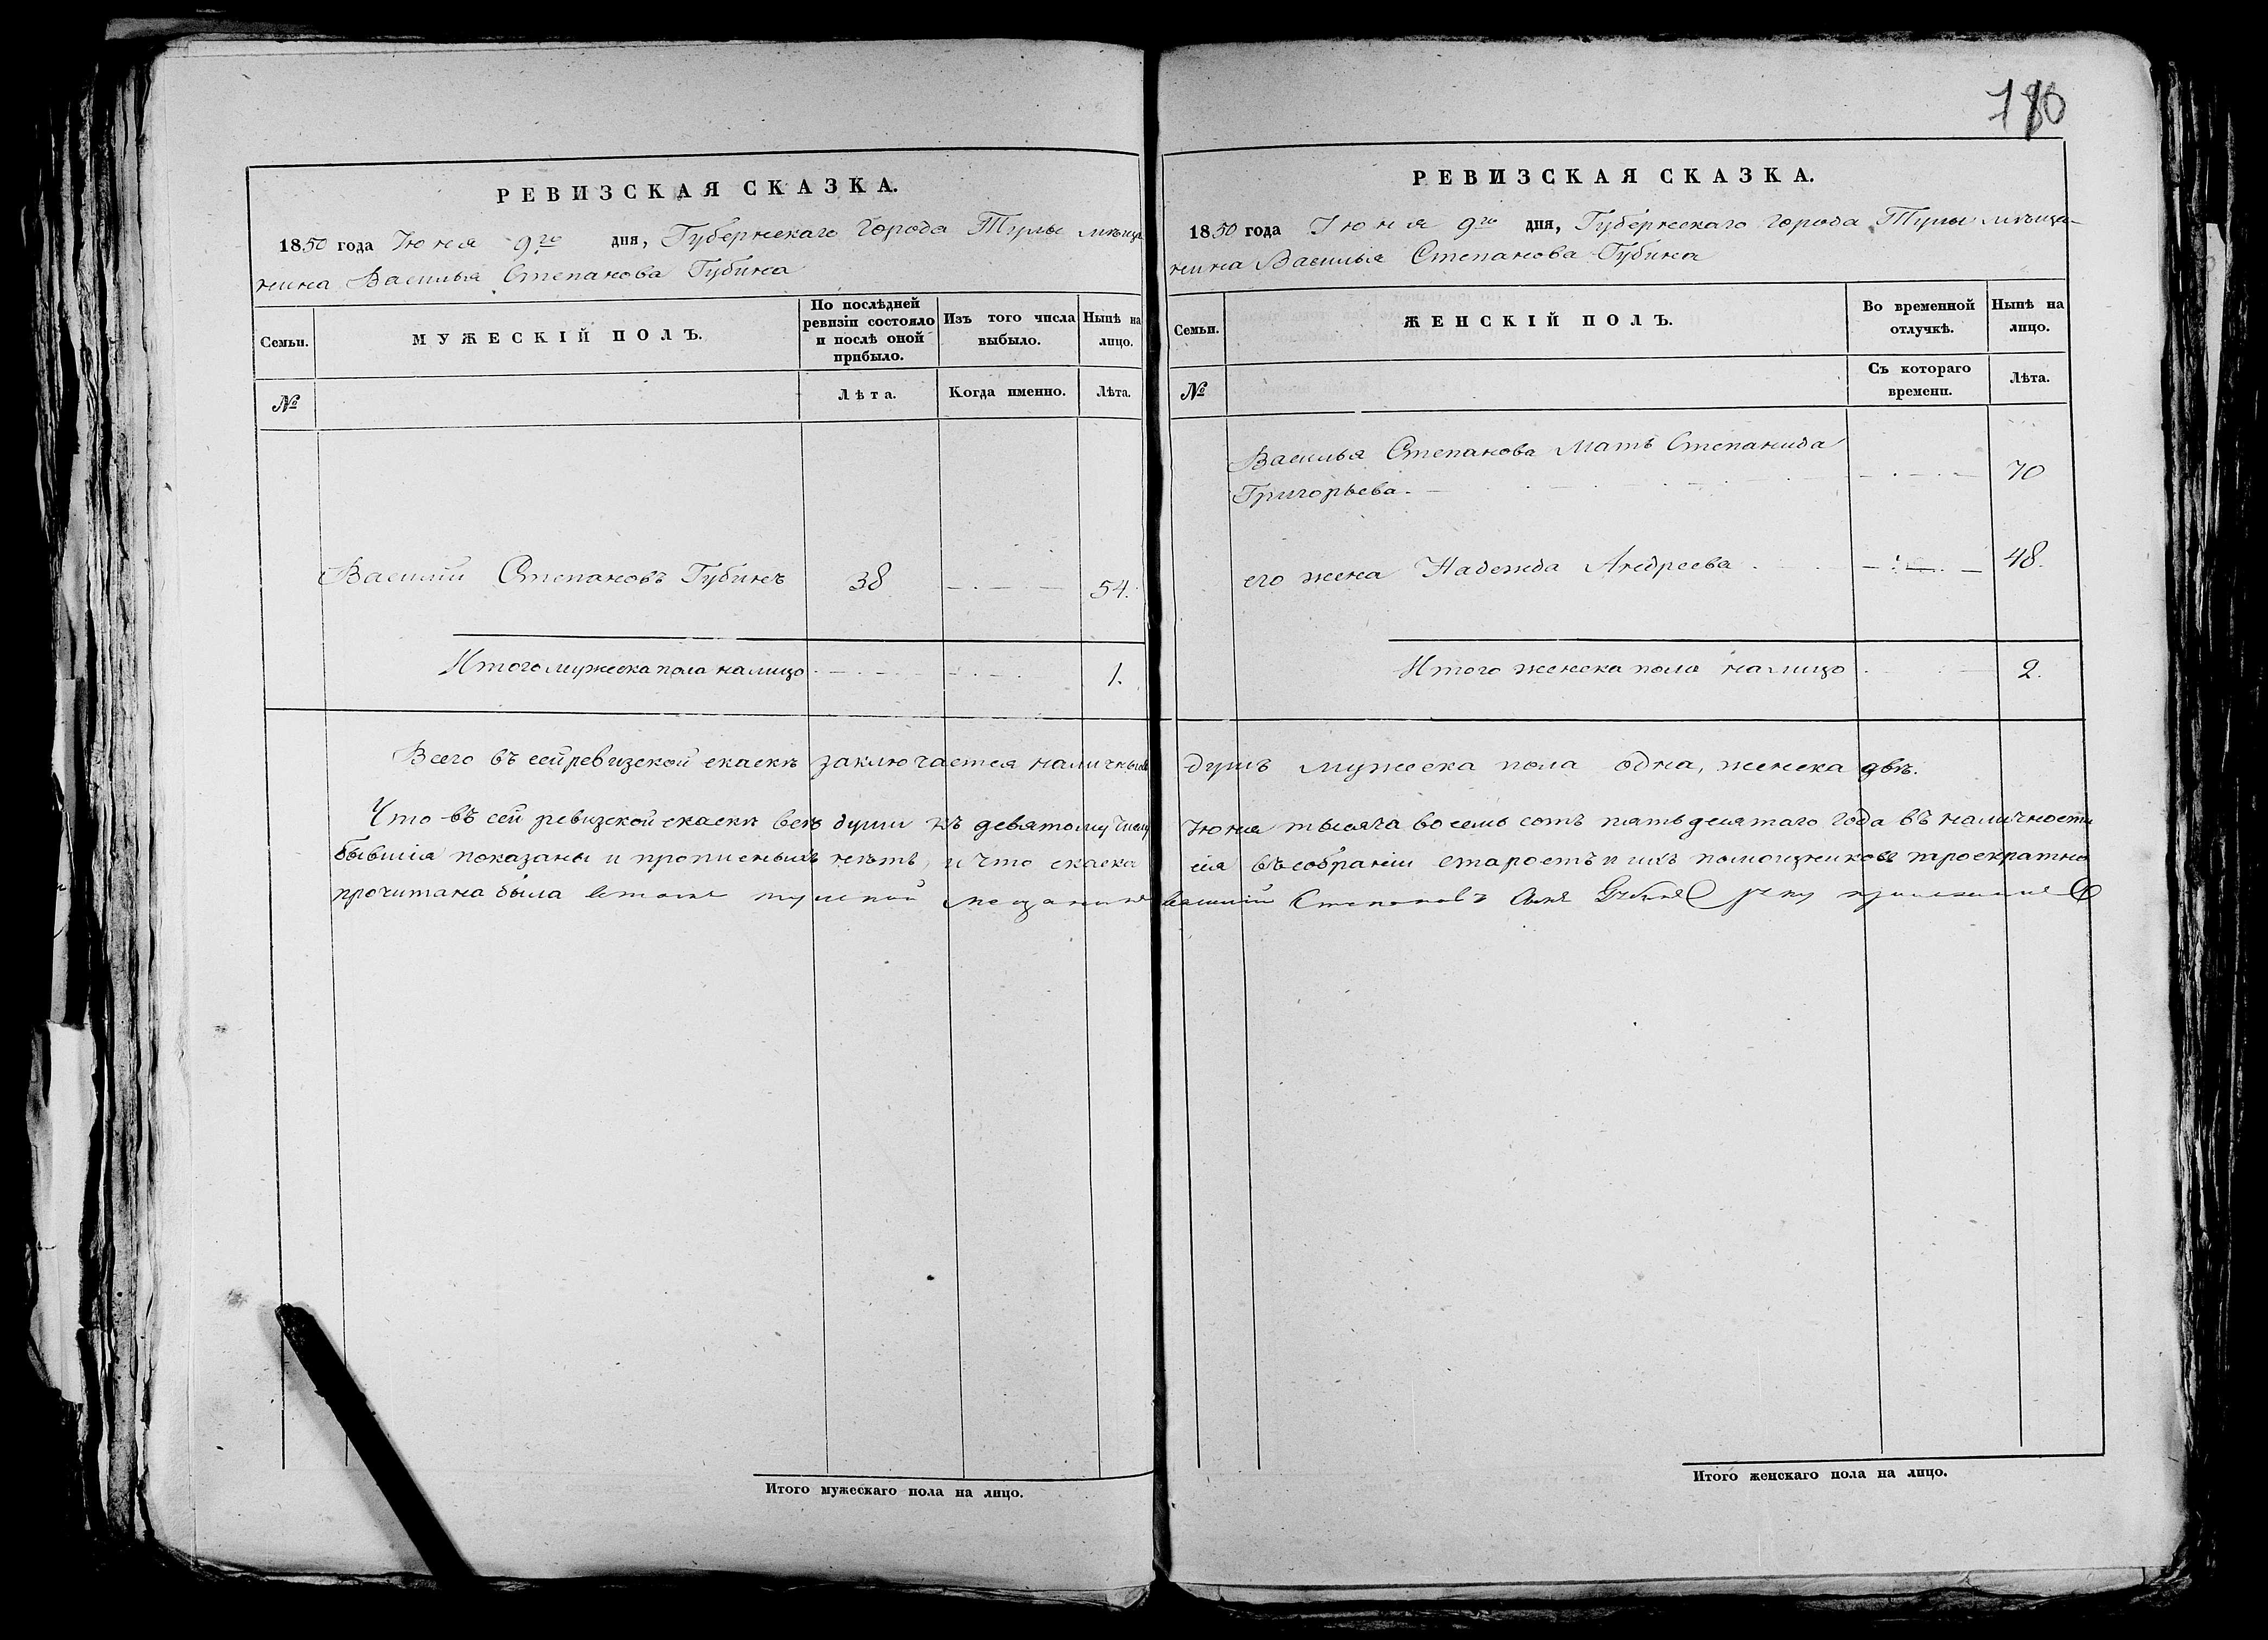 180
РЕВИЗСКАЯ СКАЗКА.
1850 года Іюня 9го дня, Губернскаго города Тулы мѣща
нина Василья Степанова Губина
Семьи.
МУЖЕСКІЙ ПОЛЪ.
По послѣдней ревизіи состояло и послѣ оной прибыло.
Изъ того числа выбыло.
Нынѣ на лицо.
№
Лѣта.
Когда именно.
Лѣта.
Василій Степановъ Губинъ 38 54.
Итого мужеска пола налицо 1.
РЕВИЗСКАЯ СКАЗКА.
1850 года Іюня 9го дня, Губернскаго города Тулы мѣща-
нина Василья Степанова Губина
Семьи.
ЖЕНСКІЙ ПОЛЪ.
Во временной отлучкѣ.
Нынѣ на лицо.
№
Съ котораго времени.
Лѣта.
Василья Степанова Мать Степанида
Григорьева. 70
его жена Надежда Андреева 48.
Итого женска пола налицо 2.
Всего въ сей ревизской скаскѣ заключается наличныхъ душъ мужеска пола одна, женска двѣ.
Что въ сей ревизской скаскѣ всѣ души къ девятому числу Іюня тысяча восемь сотъ пятьдесятаго года въ наличности
бывшія показаны и прописныхъ нѣтъ, и что скаска сія въ собраніи старостъ и ихъ помощниковъ троекратно
прочитана была втомъ тулской мещанинъ василий Степановъ Сынъ Губинъ руку приложилъ
Итого мужескаго пола на лицо.
Итого женскаго пола на лицо.